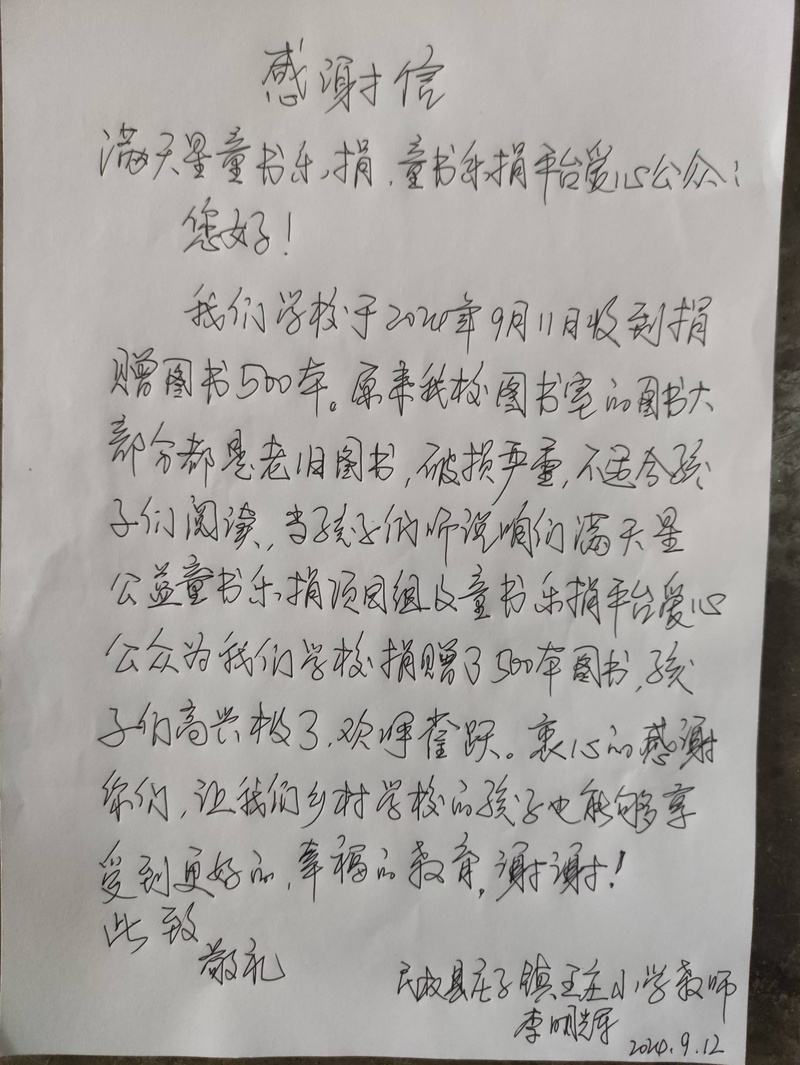 感谢信
满天星童书乐捐，童书乐捐平台爱心公众：
您好！
我们学校于2024年9月11日收到捐
赠图书500本。原来我校图书室的图书大
部分都是老旧图书，破损严重，不适合孩
子们阅读，当孩子们听说咱们满天星
公益童书乐捐项目组及童书乐捐平台爱心
公众为我们学校捐赠了500本图书，孩
子们高兴极了，欢呼雀跃。衷心的感谢
你们，让我们乡村学校的孩子也能够享
受到更好的，幸福的教育，谢谢！
此致
敬礼
民权县庄子镇王庄小学教师
李明辉
2024.9.12